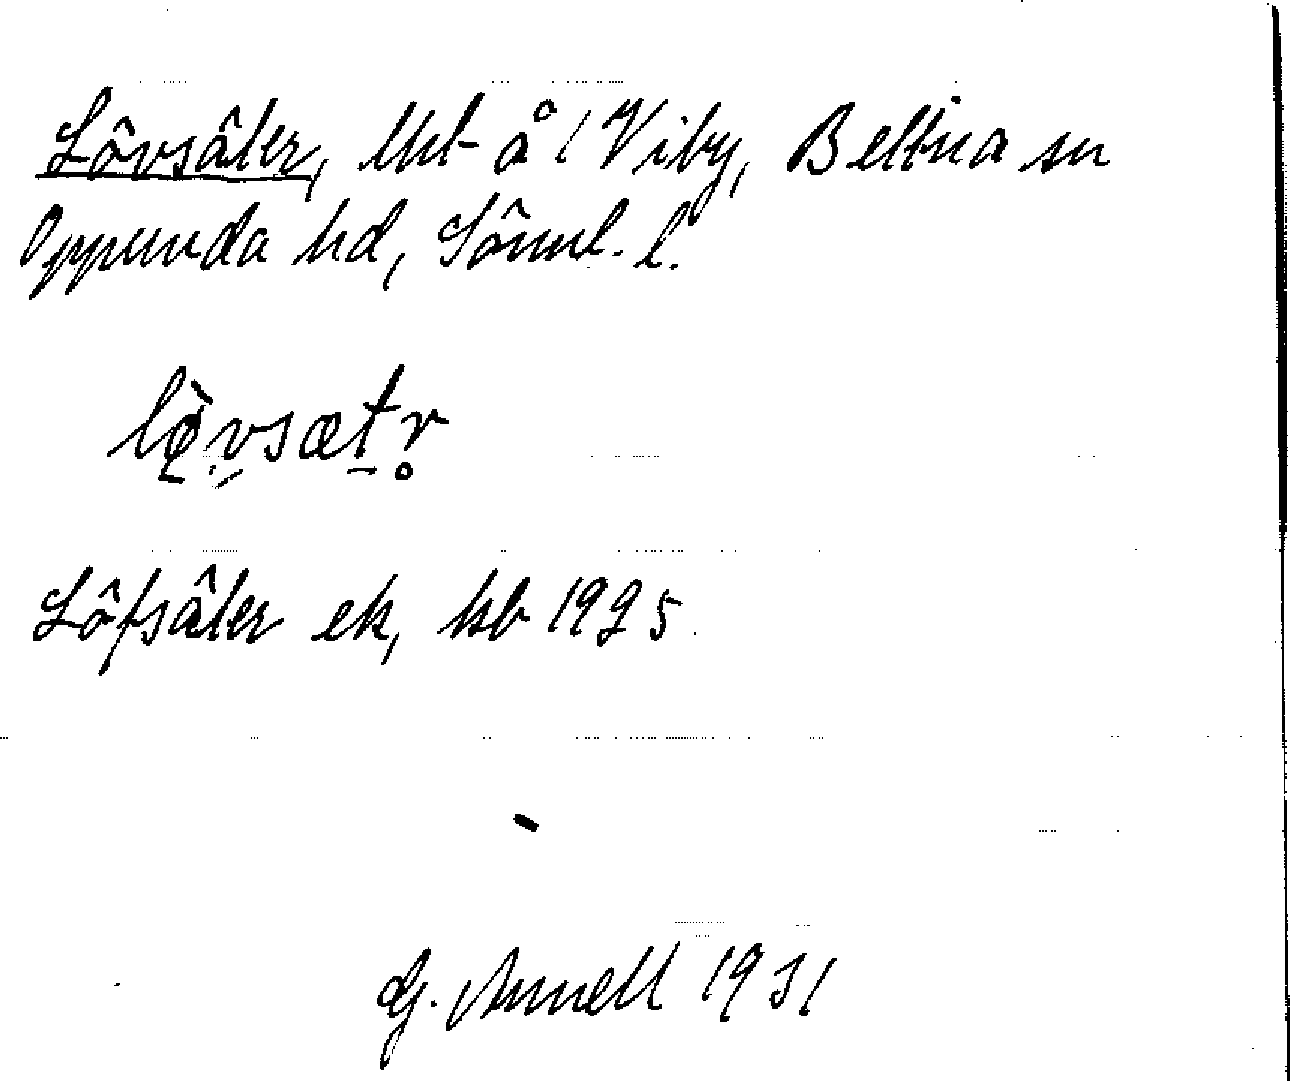 Lövsäter, lht å 1 Viby, Bettna sn
Oppunda hd, Söml. l.
lö̀vsætr̥
Löfsäter ek, kb 1925.
G. Arnell 1931